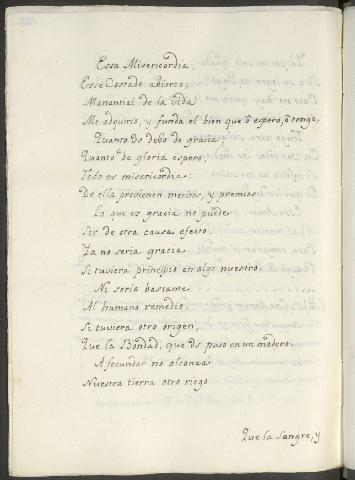 Essa Misericordia,
Esse Costado abierto,
Manantial de la vida
Me adquirio, y funda el bien que ò espero, ò tengo.
Quanto os debo de gracia,
Quanto de gloria espero,
Todo es misericordia:
De ella provienen meritos, y premios.
Lo que es gracia no puede
Ser de otra causa efecto.
Ya no seria gracia
Si tuviera principio en algo nuestro.
Ni seria bastante
Al humano remedio,
Si tuviera otro origen,
Que la Bondad, que os puso en un madero.
A fecundar no alcanza
Nuestra tierra otro riego
Que la Sangre, y